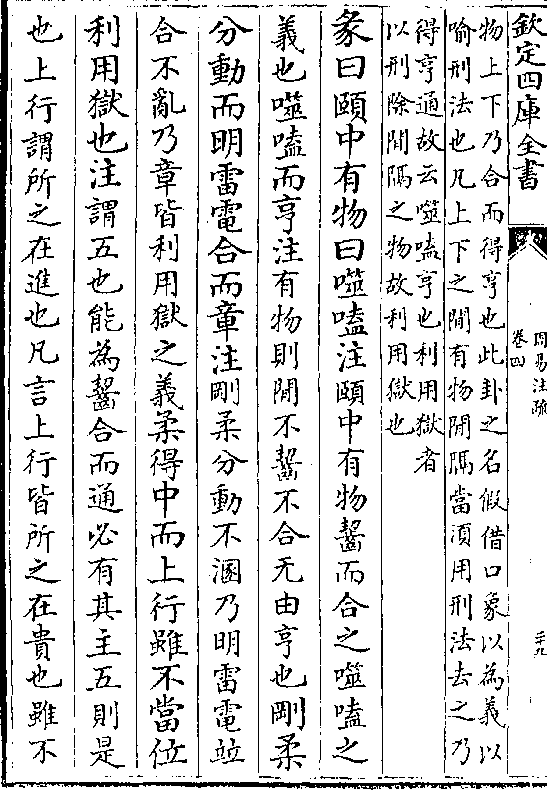 欽定四庫全書
周易注疏
卷四
三九
物上下乃合而得亨也此卦之名假借口象以為義以
喻刑法也凡上下之間有物閒隔當須用刑法去之乃
得亨通故云噬嗑亨也利用獄者
以刑除閒隔之物故利用獄也
彖曰頤中有物曰噬嗑注頤中有物齧而合之噬嗑之
義也噬嗑而亨注有物則閒不齧不合无由亨也剛柔
分動而明雷電合而章注剛柔分動不溷乃明雷電竝
合不亂乃章皆利用獄之義柔得中而上行雖不當位
利用獄也注謂五也能為齧合而通必有其主五則是
也上行謂所之在進也凡言上行皆所之在貴也雖不